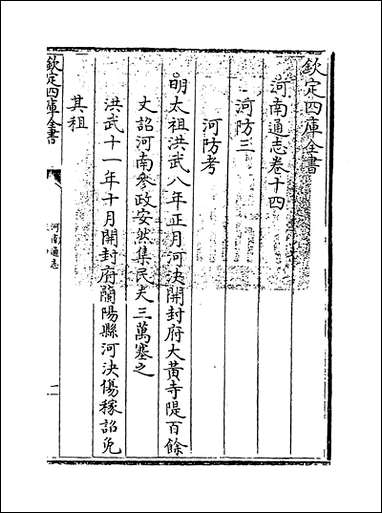 欽定四庫全書
河南通志卷十四
河防三
河防考
明太祖洪武八年正月河決開封府大黄寺隄百餘
丈詔河南參政安然集民夫三萬塞之
洪武十一年十月開封府蘭陽縣河決傷稼詔免
其租
欽定四庫全書
河南通志
一